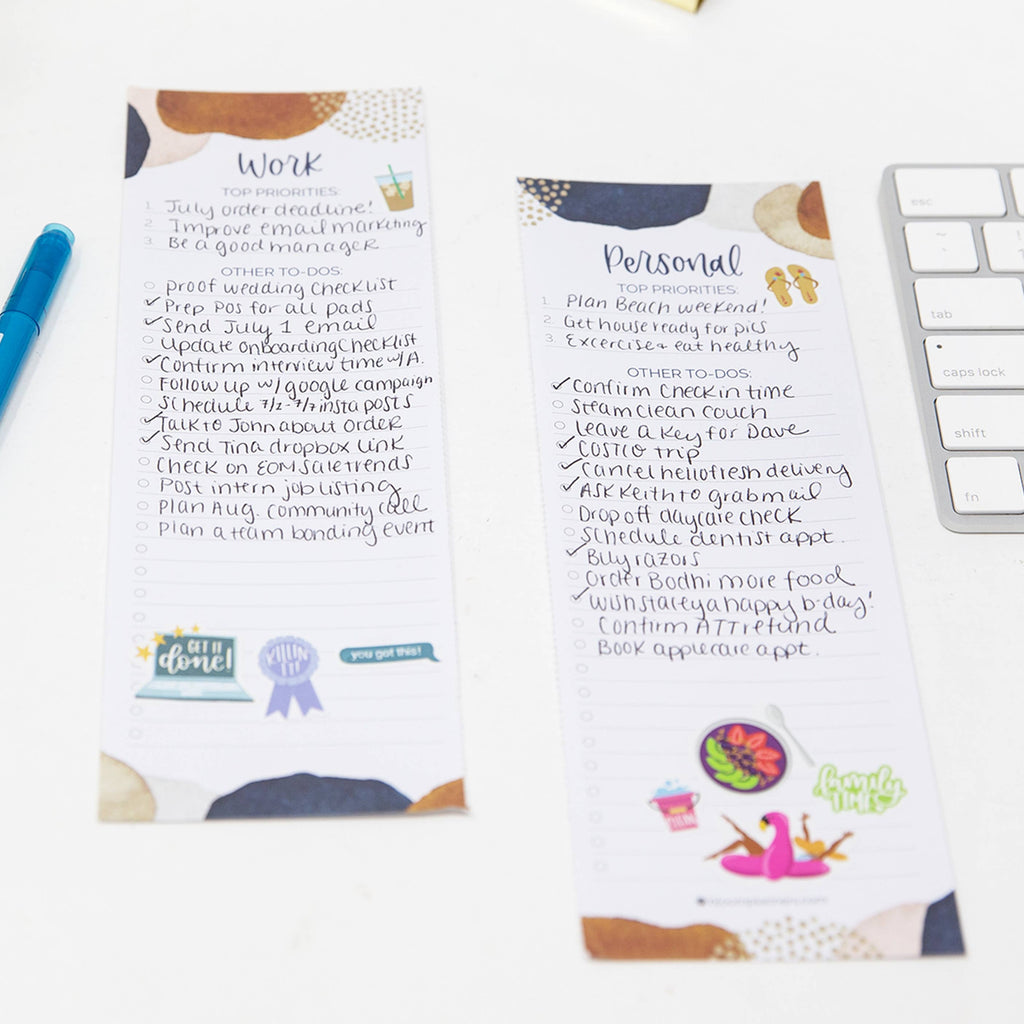 Work
TOP PRIORITIES:
1. July order deadline!
2. Improve email marketing
3. Be a good manager
OTHER TO-DOS:
proof wedding checklist
✓ Prep POS for all pads
✓ Send July 1 email
Update onboarding checklist
✓ Confirm interview time w/A.
Follow up w/ google campaign
Schedule 7/2-7/7 insta posts
✓ Talk to John about order
✓ Send Tina dropbox link
Check on EOM sale trends
Post intern job listing
Plan Aug. community call
Plan a team bonding event
GET IT
done!
KILLIN'
IT!
you got this!
Personal
TOP PRIORITIES:
1. Plan Beach weekend!
2. Get house ready for pics
3. Excercise + eat healthy
OTHER TO-DOS:
✓ Confirm check in time
Steam clean couch
Leave a key for Dave
✓ COSTCO trip
✓ Cancel hellofresh delivery
✓ ASK Keith to grab mail
Drop off daycare check
Schedule dentist appt.
✓ Buy razors
Order Bodhi more food
✓ Wish a happy b-day!
Confirm ATT refund
Book applecare appt.
family
TIME
esc
~
`
!
tab
caps lock
shift
fn